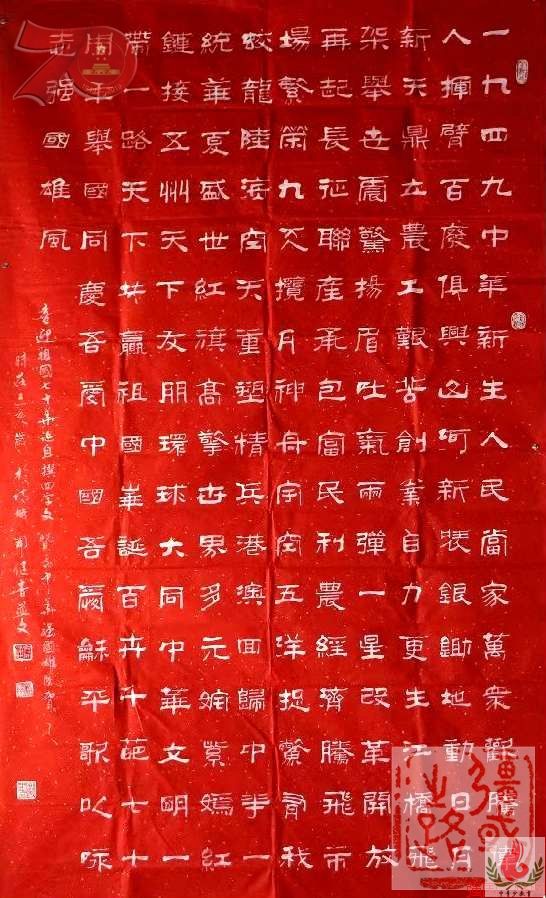 一九四九中華新生人民當家萬衆歡騰偉
人揮臂百廢俱興山河新裝銀鋤地動日月
新天鼎立農工艱苦創業自力更生江橋飛
架舉世震驚揚眉吐氣兩彈一星改革開放
再起長征聯產承包富民利農經濟騰飛市
場繁榮九天攬月神舟宇空五洋捉鱉有我
蛟龍陸海空天重塑精兵港澳回歸中華一
統華夏盛世紅旗高擎世界多元姹紫嫣紅
鏈接五州天下友朋環球大同中華文明一
帶一路天下共贏祖國華誕百卉千葩七十
周年舉國同慶吾愛中國吾願龢平歌以咏
志強國雄風
喜迎祖國七十華誕自撰四字文
時在己亥
70